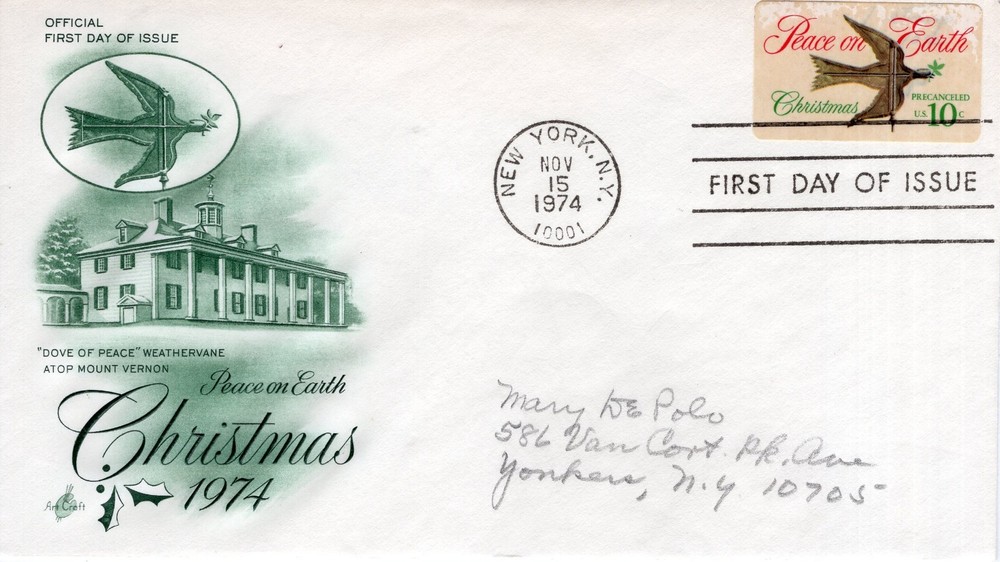 OFFICIAL
FIRST DAY OF ISSUE
"DOVE OF PEACE" WEATHERVANE
ATOP MOUNT VERNON
Peace on Earth
Christmas
1974
Art Craft
NEW YORK, N.Y.
NOV
15
1974
10001
Peace on Earth
Christmas
PRECANCELED
U.S. 10c
FIRST DAY OF ISSUE
Mary De Polo
586 Van Cort. Pk. Ave
Yonkers, N.Y. 10705